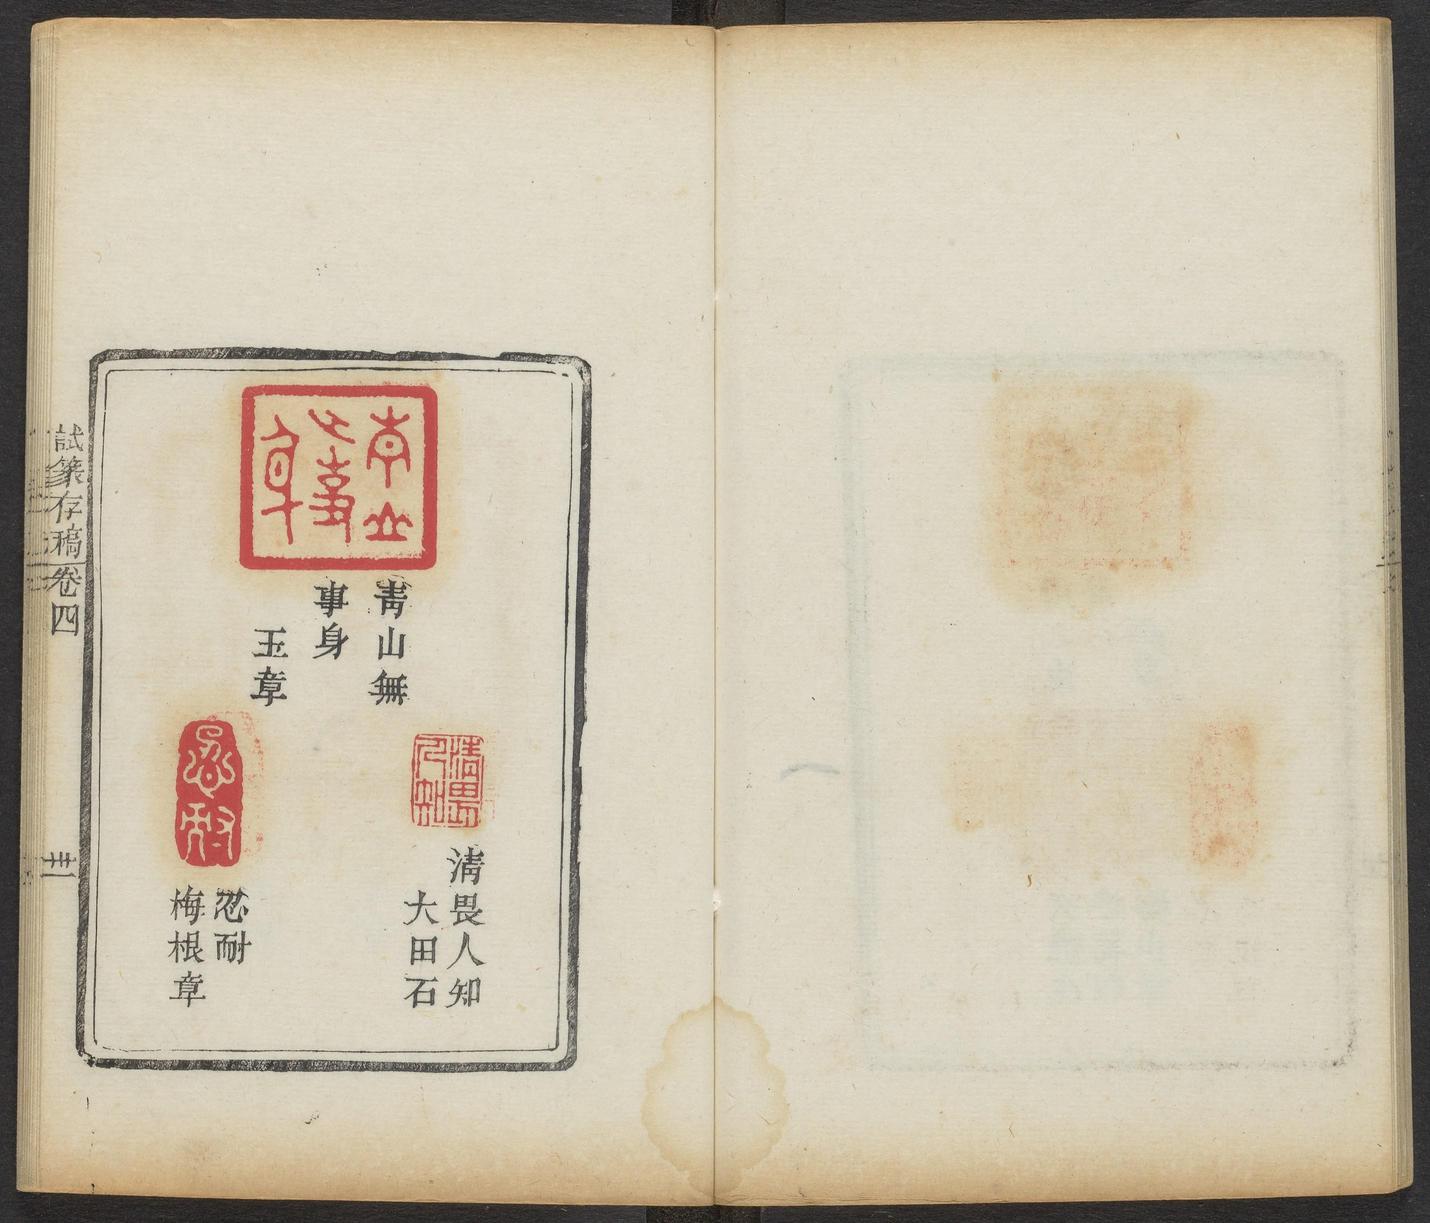 青山無
事身
玉章
清畏人知
大田石
忍耐
梅根章
試篆存稿 卷四